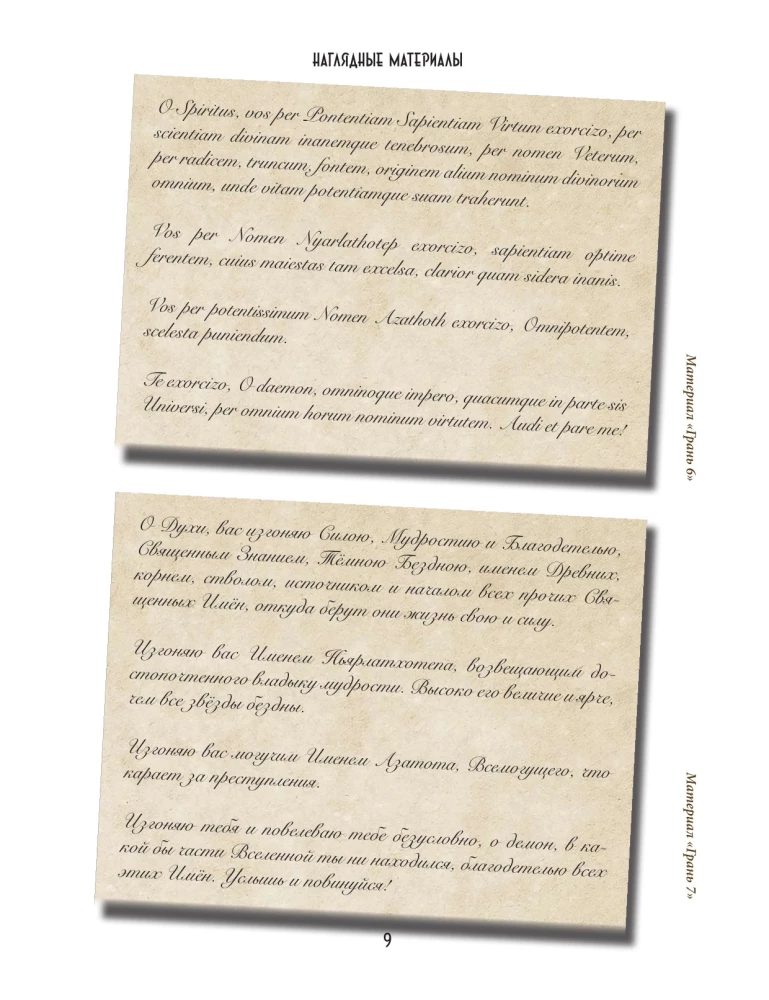 НАГЛЯДНЫЕ МАТЕРИАЛЫ
O Spiritus, vos per Pontentiam Sapientiam Virtum exorcizo, per
scientiam divinam inanemque tenebrosum, per nomen Veterum,
per radicem, truncum, fontem, originem alium nominum divinorium
omnium, unde vitam potentiamque suam traherunt.
Vos per Nomen Nyarlathotep exorcizo, sapientiam optime
ferentem, cuius maiestas tam excelsa, clarior quam sidera inanis.
Vos per potentissimum Nomen Azathoth exorcizo, Omnipotentem,
scelesta puniendum.
Te exorcizo, O daemon, omninoque impero, quacumque in parte sis
Universi, per omnium horum nominum virtutem. Audi et pare me!
Материал «Грань 6»
О Духи, вас изгоняю Силою, Мудростию и Благодетелью,
Священным Знанием, Тёмною Бездною, именем Древних,
корнем, стволом, источником и началом всех прочих Свя-
щенных Имён, откуда берут они жизнь свою и силу.
Изгоняю вас Именем Ньярлатхотепа, возвещающим до-
стопочтенного владыку мудрости. Высоко его величие и ярче,
чем все звёзды бездны.
Изгоняю вас могучим Именем Азатота, Всемогущего, что
карает за преступления.
Изгоняю тебя и повелеваю тебе безусловно, о демон, в ка-
кой бы части Вселенной ты ни находился, благодетелью всех
этих Имён. Услышь и повинуйся!
Материал «Грань 7»
9